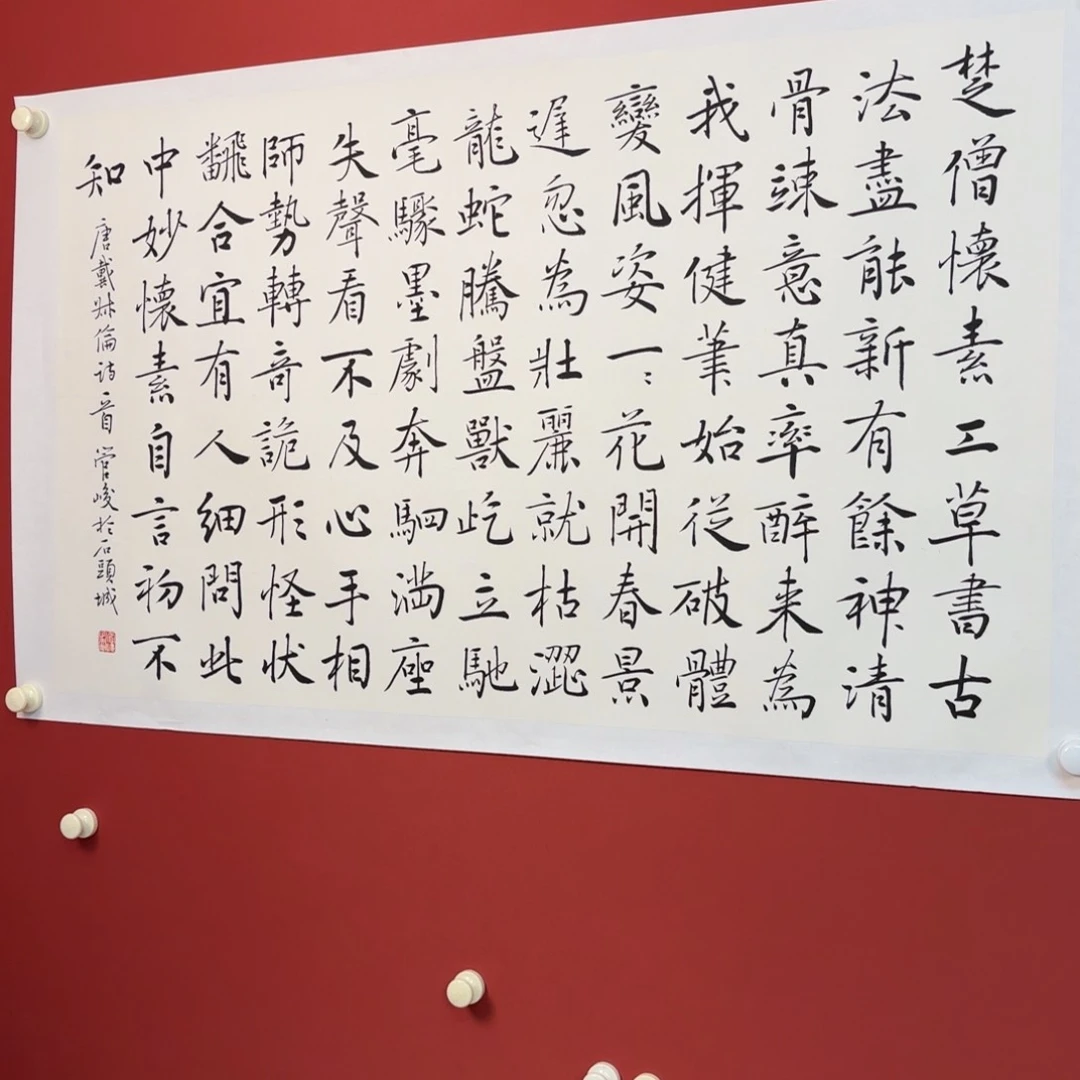 楚僧懷素工草書古
法盡能新有餘神清
骨竦意真率醉来為
我揮健筆始從破體
變風姿一〻花開春景
遲忽為壯麗就枯澀
龍蛇騰盤獸屹立馳
毫驟墨劇奔駟滿座
失聲看不及心手相
師勢轉奇詭形怪状
飜合宜有人細問此
中妙懷素自言初不
知
唐戴叔倫詩一首 管峻於石頭城